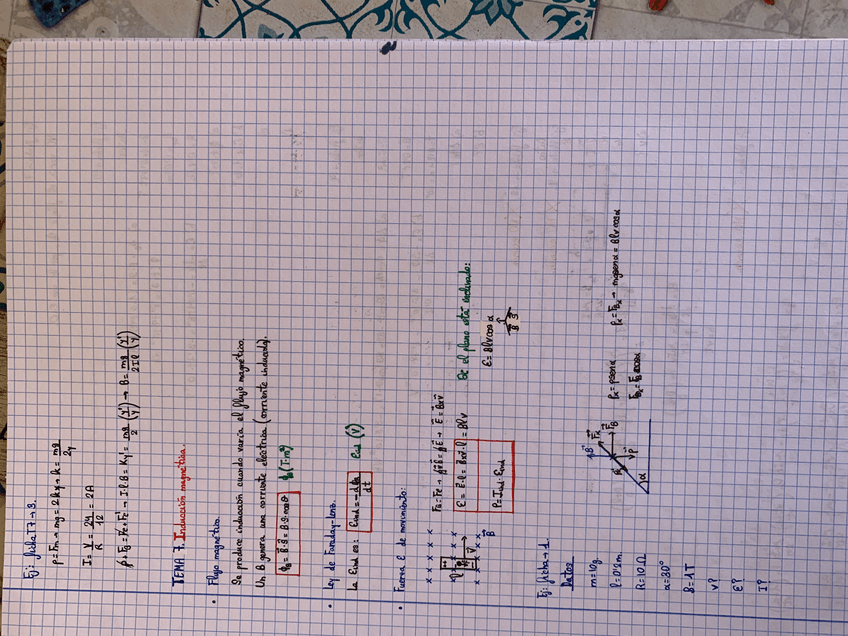 Ej: ficha T7 → 3.
P = Fm → mg = 2ky → k = mg/2y
I = V/R = 24/12 = 2A
P + FB = Fe + Fe' → I·l·B = Ky' = mg/2 (y'/y) → B = mg/2Il (y'/y)
TEMA 7. Inducción magnética.
• Flujo magnético.
Se produce inducción cuando varía el flujo magnético.
Un B genera una corriente eléctrica (corriente inducida).
ΦB = B·S = B·S·cosθ ΦB (T·m²)
• Ley de Faraday-Lenz.
La Eind es: Eind = -dΦB/dt Eind (V)
• Fuerza E de movimiento:
FB = Fe → qvB = qE → E = Bxv
E = E·l = Bxv·l = Blv
P = Iind·Eind
Si el plano está inclinado:
E = Blv cos α
B S
Ej: ficha → 1.
Datos
m = 10g
l = 0'2m
R = 10 Ω
α = 30°
B = 1T
v?
E?
I?
Px = p sen α
FBx = FB cos α
Px = FBx → mg sen α = Blv cos α